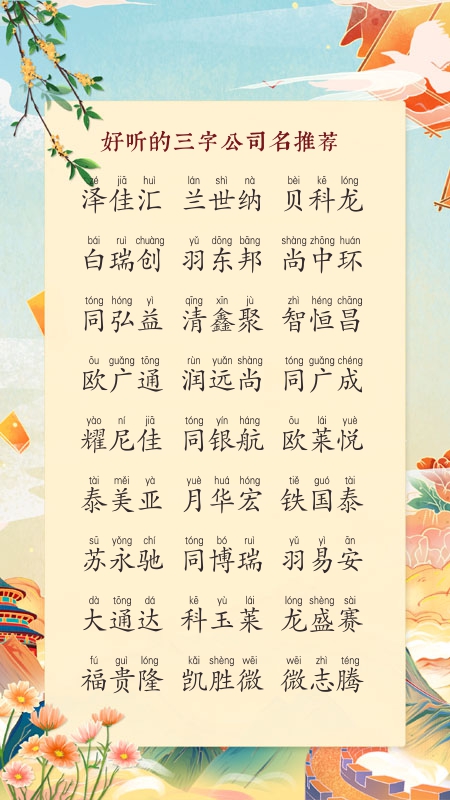 好听的三字公司名推荐
zé jiā huì lán shì nà bèi kē lóng
泽佳汇 兰世纳 贝科龙
bái ruì chuàng yǔ dōng bāng shàng zhōng huán
白瑞创 羽东邦 尚中环
tóng hóng yì qīng xīn jù zhì héng chāng
同弘益 清鑫聚 智恒昌
ōu guǎng tōng rùn yuǎn shàng tóng guǎng chéng
欧广通 润远尚 同广成
yào ní jiā tóng yín háng ōu lái yuè
耀尼佳 同银航 欧莱悦
tài měi yà yuè huá hóng tiě guó tài
泰美亚 月华宏 铁国泰
sū yǒng chí tóng bó ruì yǔ yì ān
苏永驰 同博瑞 羽易安
dà tōng dá kē yù lái lóng shèng sài
大通达 科玉莱 龙盛赛
fú guì lóng kǎi shèng wēi wēi zhì téng
福贵隆 凯胜微 微志腾